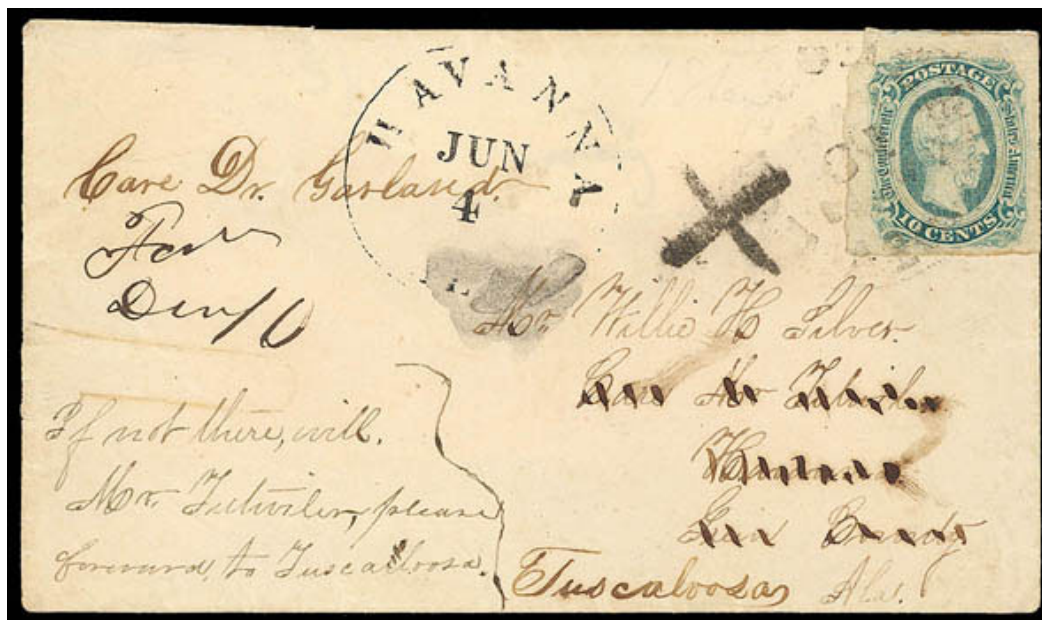 HAVANNA
JUN
4
POSTAGE
The Confederate States America
10 CENTS
Care Dr. Garland
For
Due/10
Mr Willie H Silver.
Care Mr Tutwiler
Green County
Tuscaloosa Ala.
If not there, will.
Mr. Tutwiler, please
forward, to Tuscaloosa.